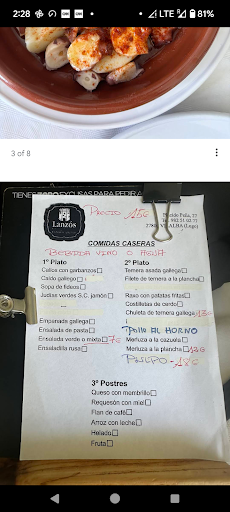 2:28
LTE
81%
3 of 8
TIENE
EXCUSAS PARA PEDIR
Lanzós
PRECIO 15€
Plácido Peña, 27
27800 VILALBA (Lugo)
COMIDAS CASERAS
BEBIDA VINO O AGUA
1º Plato
Callos con garbanzos
Caldo gallego
Sopa de fideos
Judías verdes S.C. jamón
Empanada gallega
Ensalada de pasta
Ensalada verde o mixta 7€
Ensaladilla rusa
2º Plato
Ternera asada gallega
Filete de ternera a la plancha
Raxo con patatas fritas
Costilletas de cerdo
Chuleta de ternera gallega 13€
Pollo AL HORNO
Merluza a la cazuela
Merluza a la plancha 13€
PULPO - 18€
3º Postres
Queso con membrillo
Requesón con miel
Flan de café
Arroz con leche
Helado
Fruta